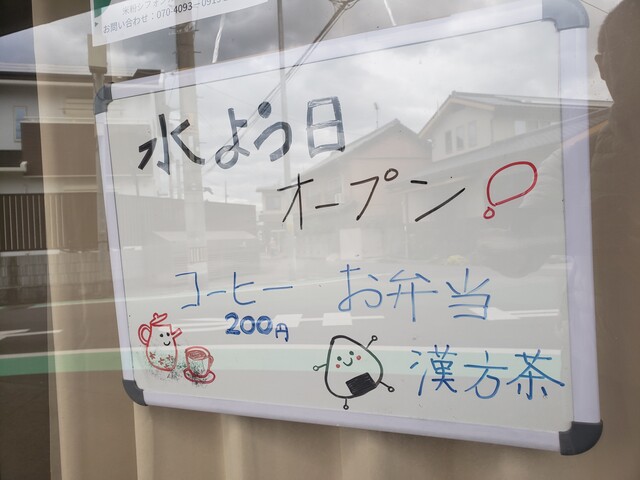 お問い合わせ：070-4093-
水よう日
オープン！
コーヒー お弁当
200円
漢方茶